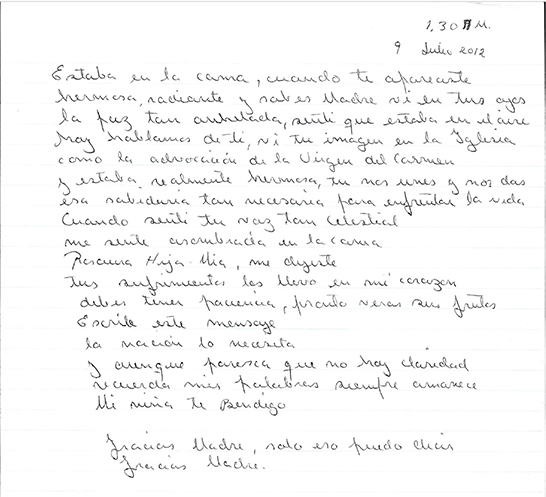 1,30 A M.
9 Julio 2012
Estaba en la cama, cuando te apareciste
hermosa, radiante y sabes Madre vi en tus ojos
la paz tan anhelada, sentí que estaba en el aire
hoy hablamos de ti, vi tu imagen en la Iglesia
como la advocación de la Virgen del Carmen
y estaba realmente hermosa, tu nos unes y nos das
esa sabiduria tan necesaria para enfrentar la vida
Cuando sentí tu voz tan celestial
me sente asombrada en la cama
Rosaura Hija Mia, me dijiste
tus sufrimientos los llevo en mi corazon
debes tener paciencia, pronto veras sus frutos
Escribe este mensaje
la nación lo necesita
y aunque paresca que no hay claridad
recuerda mis palabras siempre amanece
Mi niña te Bendigo
Gracias Madre, solo eso puedo decir
Gracias Madre.